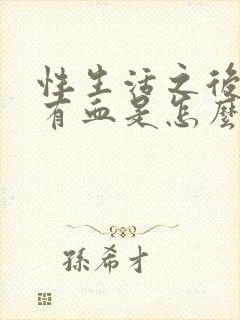 性生活之後
有血是怎麼
孫希才